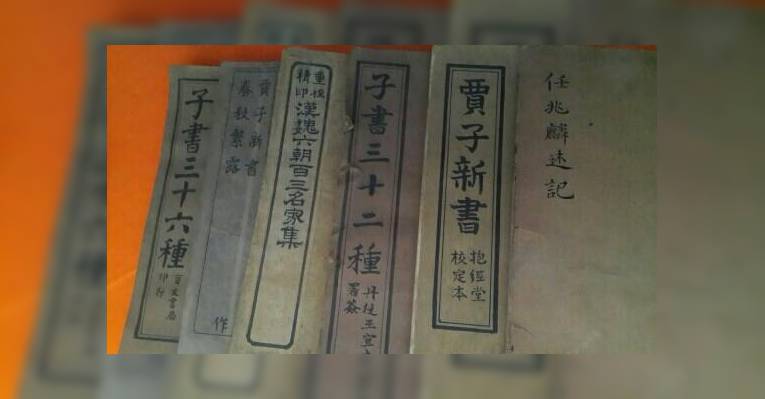 任兆麟述記
賈子新書
抱經堂
校定本
子書三十二種
署簽
重校
精印
漢魏六朝百三名家集
賈子新書
春秋繁露
作
子書三十六種
印行